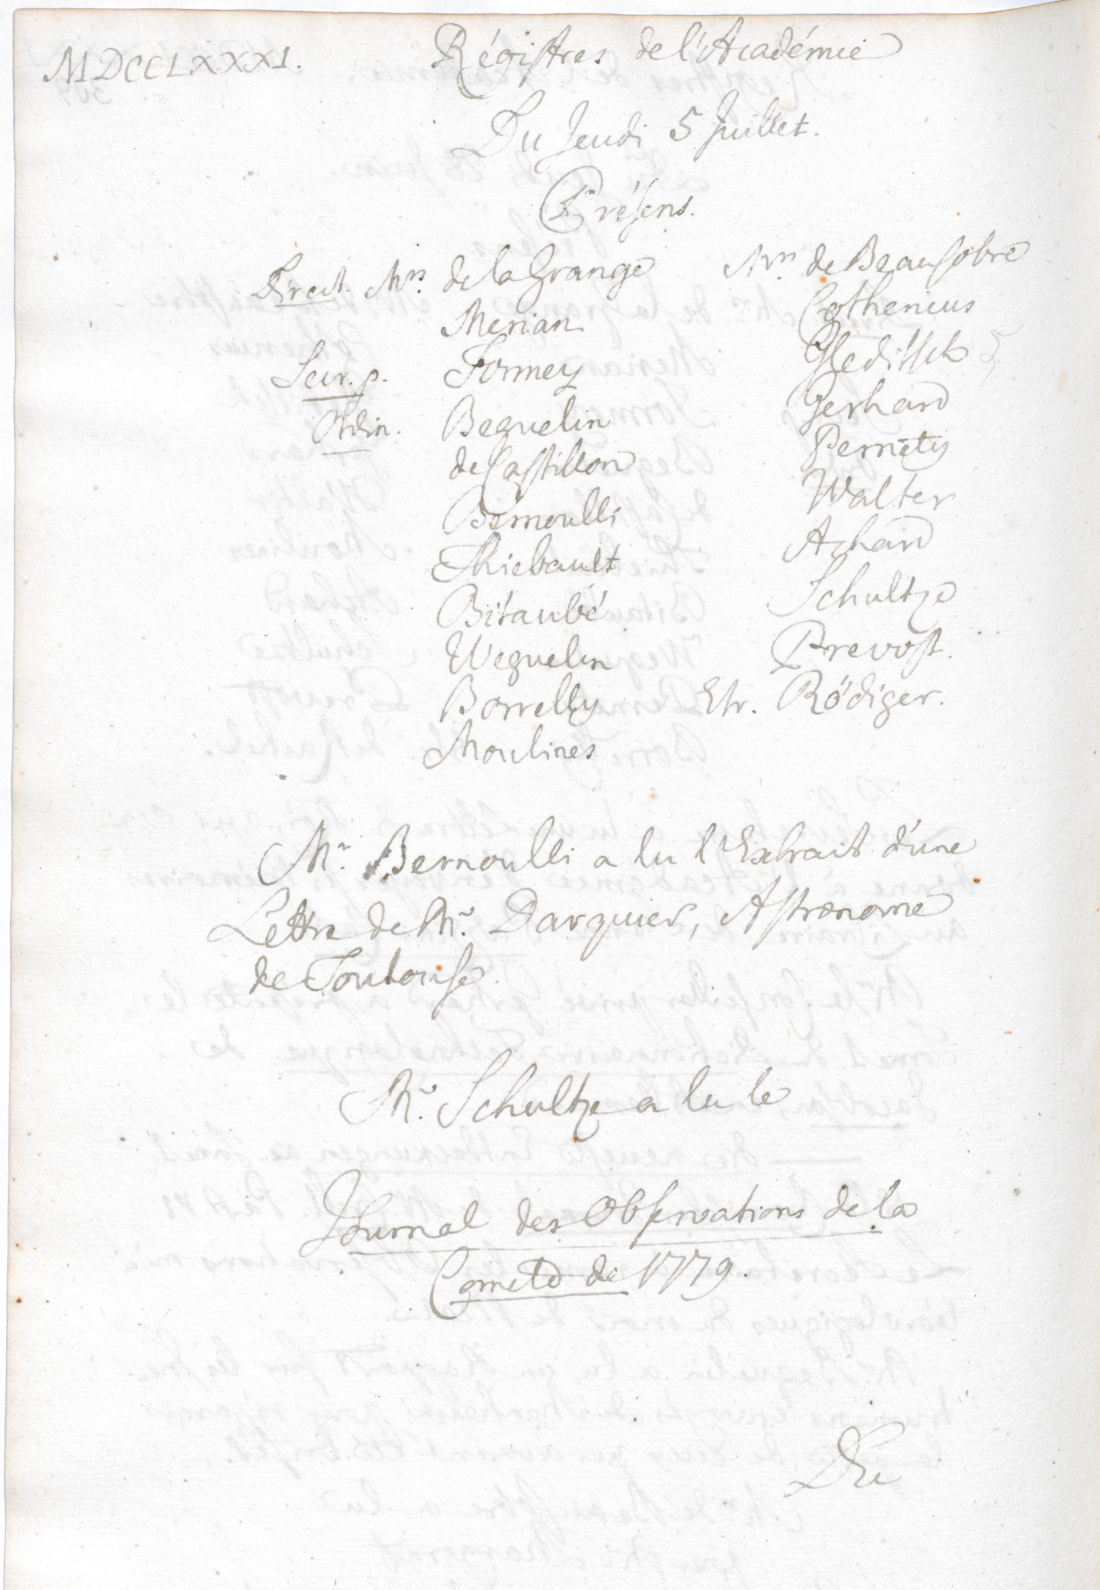 MDCCLXXXI.
Régistres de l'Académie
Du Jeudi 5 Juillet.
Présens.
Direct. Mrs de la Grange
Merian
Secr. p. Formey
Ordin. Beguelin
de Castillon
Bernoulli
Thiebault
Bitaubé
Weguelin
Borrelly
Moulines
Mrs de Beausobre
Cothenius
Gleditsch
Gerhard
Pernety
Walter
Achard
Schultze
Prevost.
Etr. Rödiger.
Mr. Bernoulli a lu l'Extrait d'une
Lettre de Mr. Darquier, Astronome
de Toulouse.
Mr. Schultze a lu le
Journal des Observations de la
Comete de 1779.
Du